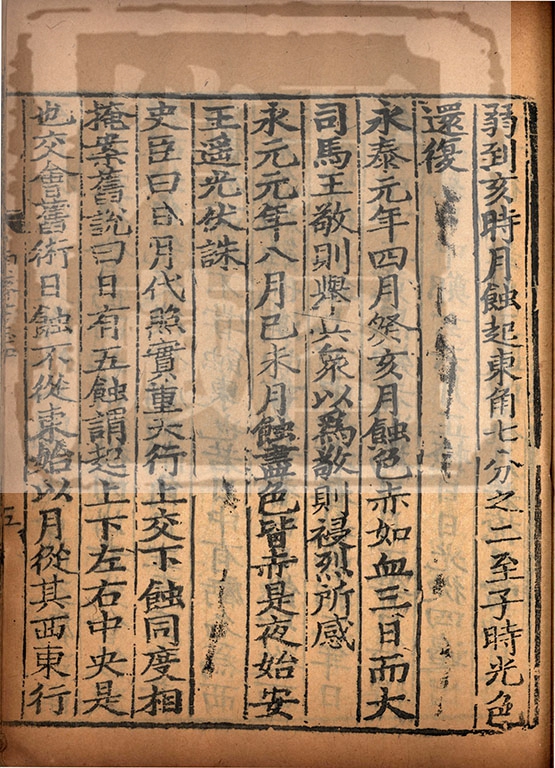 弱到亥時月蝕起東角七分之二至子時光色
還復
永泰元年四月癸亥月蝕色赤如血三日而大
司馬王敬則舉兵衆以爲敬則祲烈所感
永元元年八月已未月蝕盡色皆赤是夜始安
王遥光伏誅
史臣曰日月代照實重天行上交下蝕同度相
掩案舊說曰日有五蝕謂起上下左右中央是
也交會舊術日蝕不從東始以月從其西東行